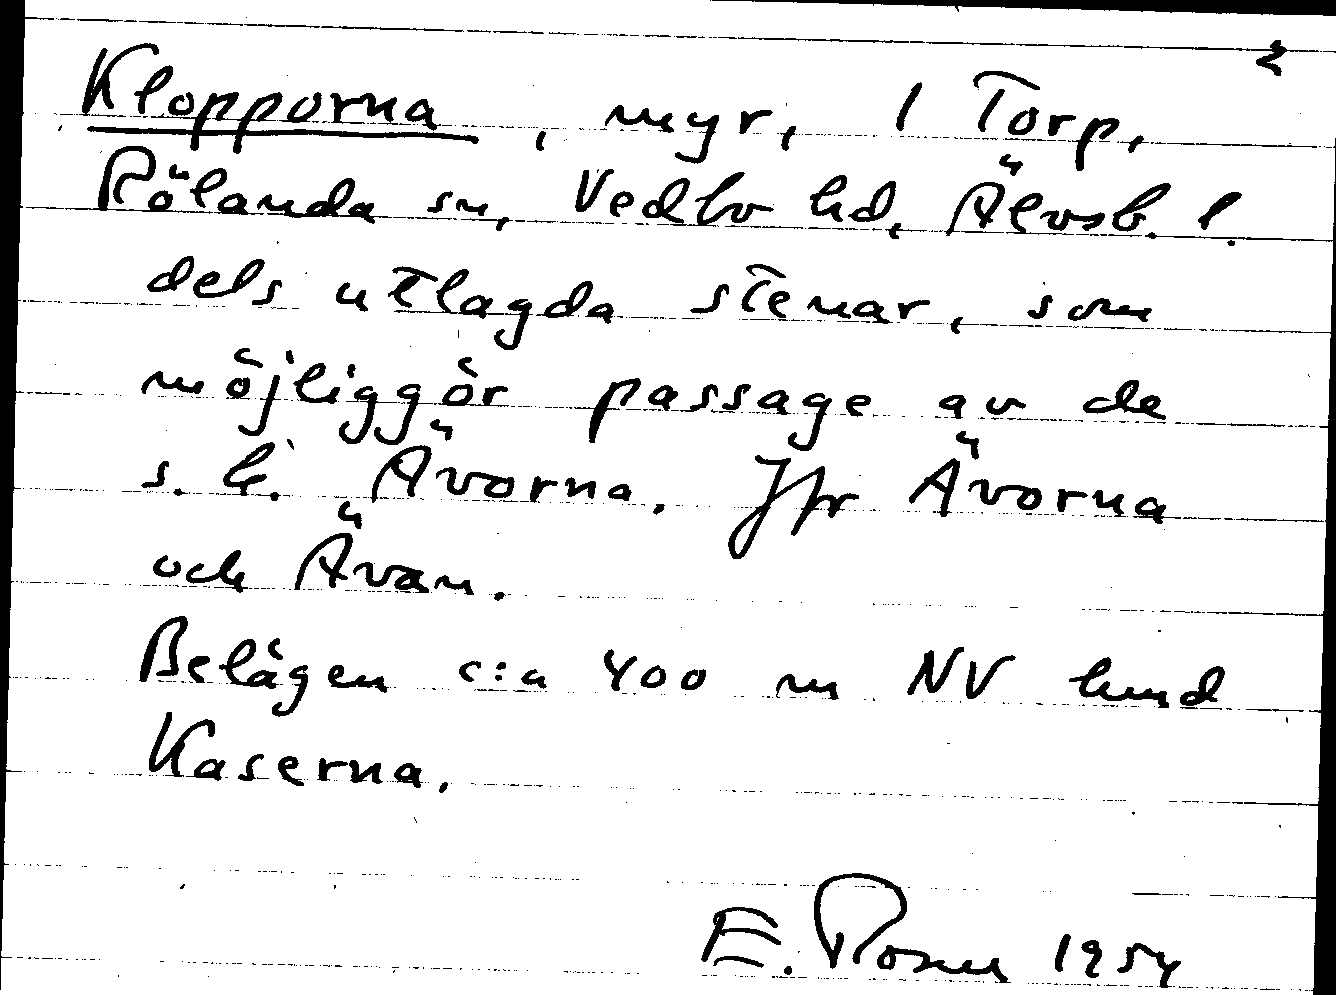 2
Klopporna, myr, 1 Torp,
Rölanda sn, Vedbo hd, Älvsb. l.
dels utlagda stenar, som
möjliggör passage av de
s. k. Ävorna. Jfr Ävorna
och Ävan.
Belägen c:a 400 m NV lund
Kaserna.
E. 1954